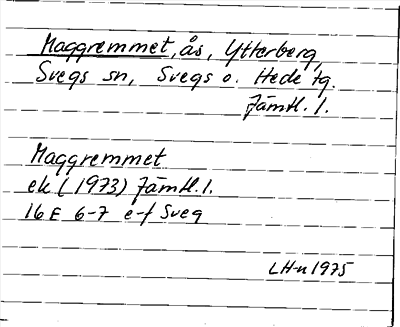 Maggremmet, ås, Ytterberg
Svegs sn, Svegs o. Hede tg.
Jämtl. l.
Maggremmet
ek (1973) Jämtl. l.
16E 6-7 e-f Sveg
LH-n 1975